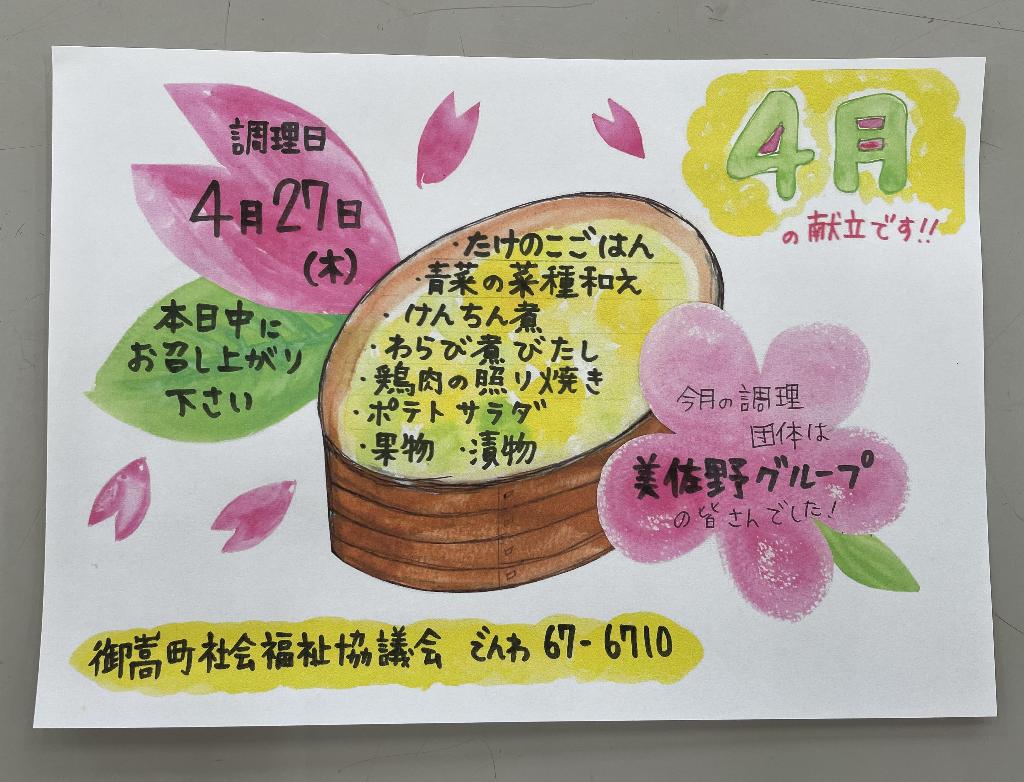 4月
の献立です!!
調理日
4月27日
(木)
本日中に
お召し上がり
下さい
・たけのこごはん
・青菜の菜種和え
・けんちん煮
・わらび煮びたし
・鶏肉の照り焼き
・ポテトサラダ
・果物 ・漬物
今月の調理
団体は
美佐野グループ
の皆さんでした!
御嵩町社会福祉協議会 でんわ 67-6710